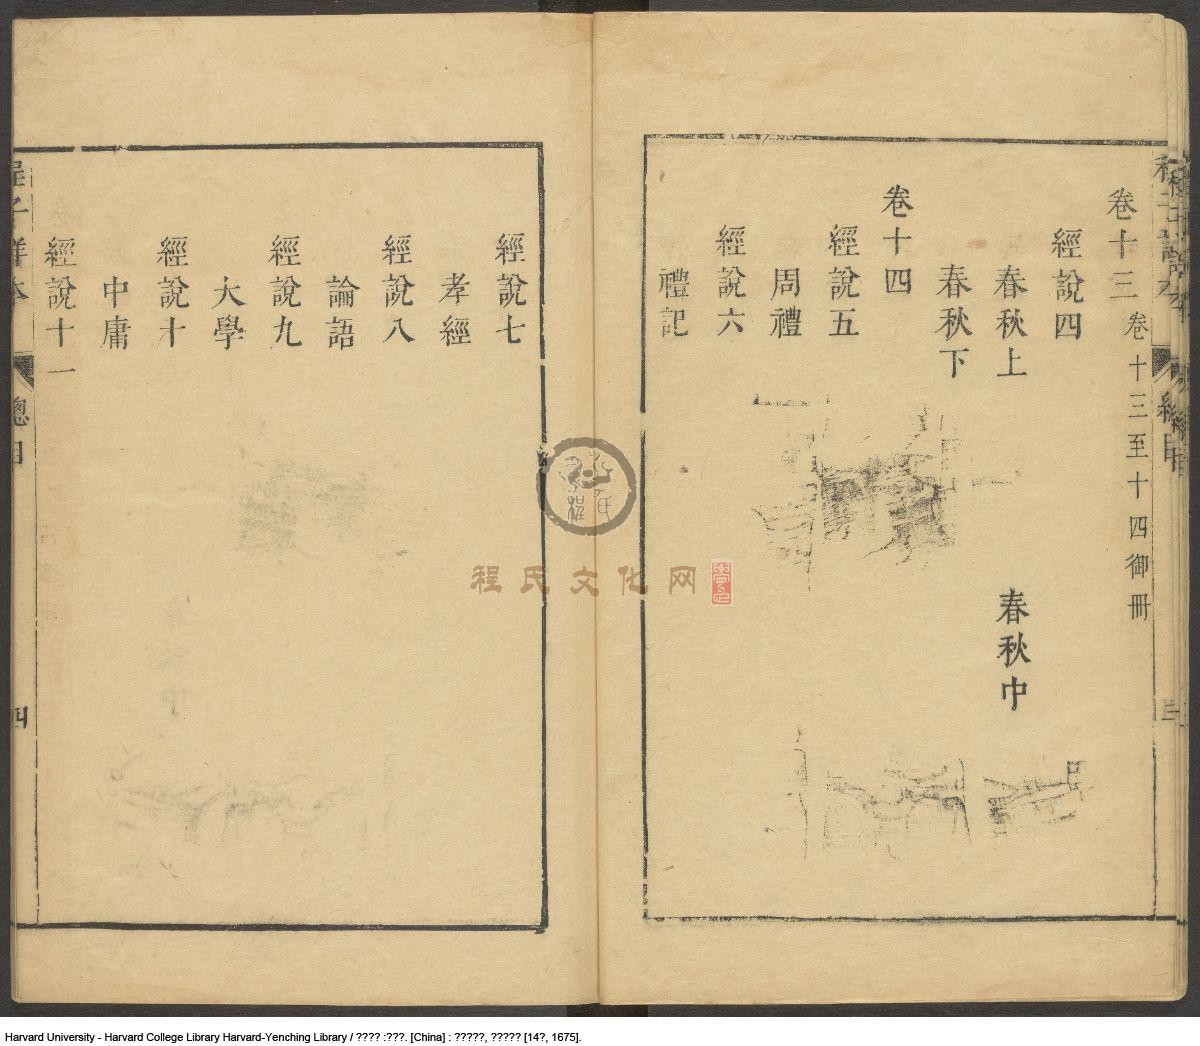 卷十三
卷十三至十四御冊
經說四
春秋上
春秋中
春秋下
卷十四
經說五
周禮
經說六
禮記
經說七
孝經
經說八
論語
經說九
大學
經說十
中庸
經說十一
總目
四
程氏文化网
Harvard University - Harvard College Library Harvard-Yenching Library / ???? :???. [China] : ?????, ????? [14?, 1675].